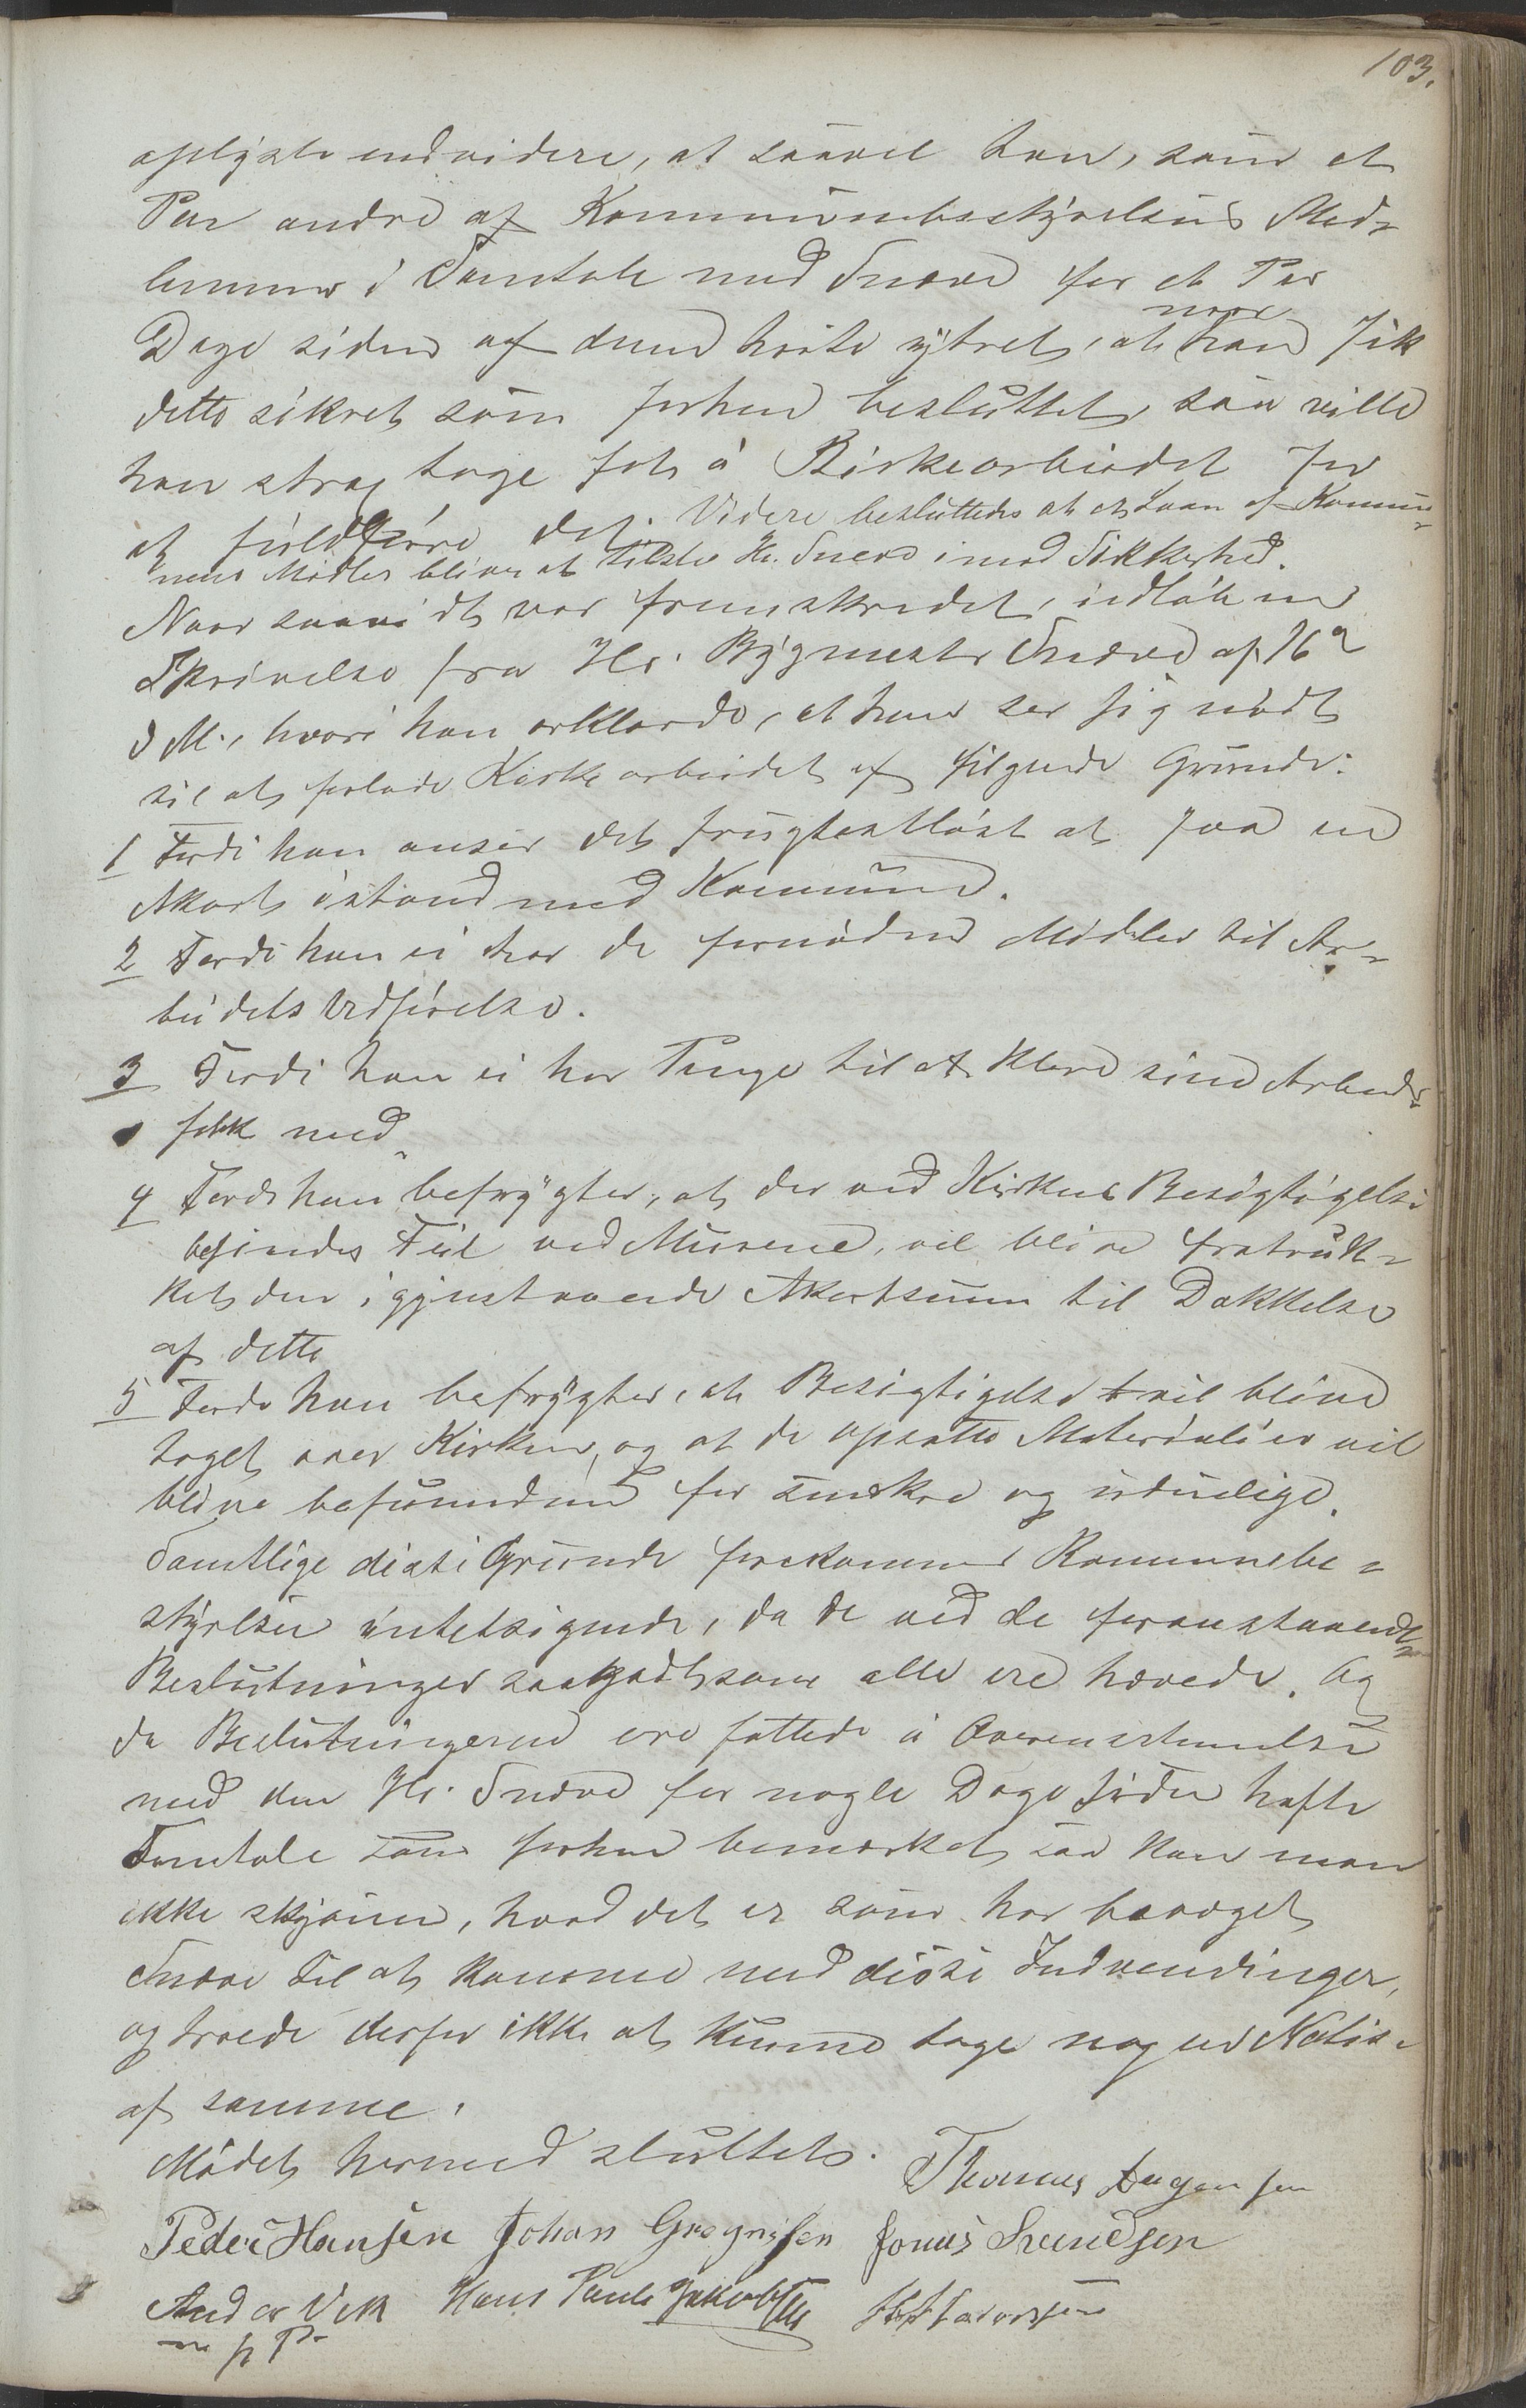 103.
oplyste endvidere, at saavel han, som et
Par andre af Kommunebestyrelsens Med-
lemmer i Samtale med Sneve for et Par
Dage siden af denne hørte ytret, at naar han fik
dette sikret som forhen besluttet, saa ville
han strax tage fat i Kirkearbeidet for
at fuldføre det. Videre besluttedes at et Laan af Kommu-
nens Midler bliver at tilstaa Hr. Sneve imod Sikkerhed.
Naar saavidt var fremskredet, indløb en
Skrivelse fra Hr. Bygmester Snæve af 16de
d M., hvori han erklærede, at han ser sig nødt
til at forlade Kirkearbeidet af følgende Grunde:
1 Fordi han anser det frugtesløst at faa en
Akort istand med Kommunen.
2 Fordi han ei har de fornødne Midler til Ar-
beidets Udførelse.
3 Fordi han ei har Penge til at klare sine Arbeids-
folk med
4 Fordi han befrygter, at der ved Kirkens Besigtigelse
befindes Feil ved Murene, vil blive fratruk-
ket den igjenstaaende Akortsum til Dækkelse
af dette
5 Fordi han befrygter, at Besigtigelse vil blive
taget over Kirken, og at de opsatte Materialier vil
blive befunden for smekre og uduelige.
Samtlige disse Grunde forekommer Kommunebe-
styrelsen intetsigende, da de ved de foranstaaende
Beslutninger saagodtsom alle ere hævede. Og
da Beslutningerne ere fattede i Overensstemmelse
med den Hr. Snæve for nogle Dage siden hafte
Samtale som forhen bemærket, saa kan man
ikke skjønne, hvad det er som har bevæget
Snæve til at komme med disse Indvendinger,
og troede derfor ikke at kunne tage nogen Notis
af samme.
Mødet hermed sluttet.
Thomas Jørgensen
Peder Hansen Johan Gregersen Jonas Svendsen
And or Vik Hans Paul Jakobsen